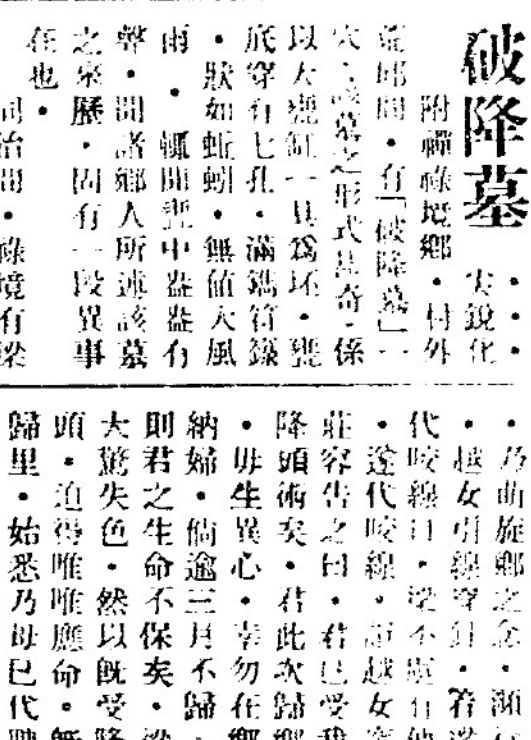 破降墓
附禪祿境鄉・村外
荒郊間・有「破降墓」一
穴・該墓之形式甚奇・係
以大甕缸一具為坯・甕
底穿有七孔・滿鐫符籙
・狀如蚯蚓・無値大風
雨・輒聞甕中盎盎有
聲・聞諸鄉人所述該墓
之來歷・固有一段異事
在也・
同治間・祿境有梁
・乃萌旋鄉之念・瀕
・越女引線穿針・・若
代咬線口・梁不虞有
・遂代咬線・詎越女
莊容告之曰・君已受我
降頭術矣・君此次歸鄉
・毋生異心・幸勿在鄉
納婦・倘逾三月不歸・
則君之生命不保矣・梁
大驚失色・然以既受降
頭・迫得唯唯應命・無
歸里・始悉乃母已代